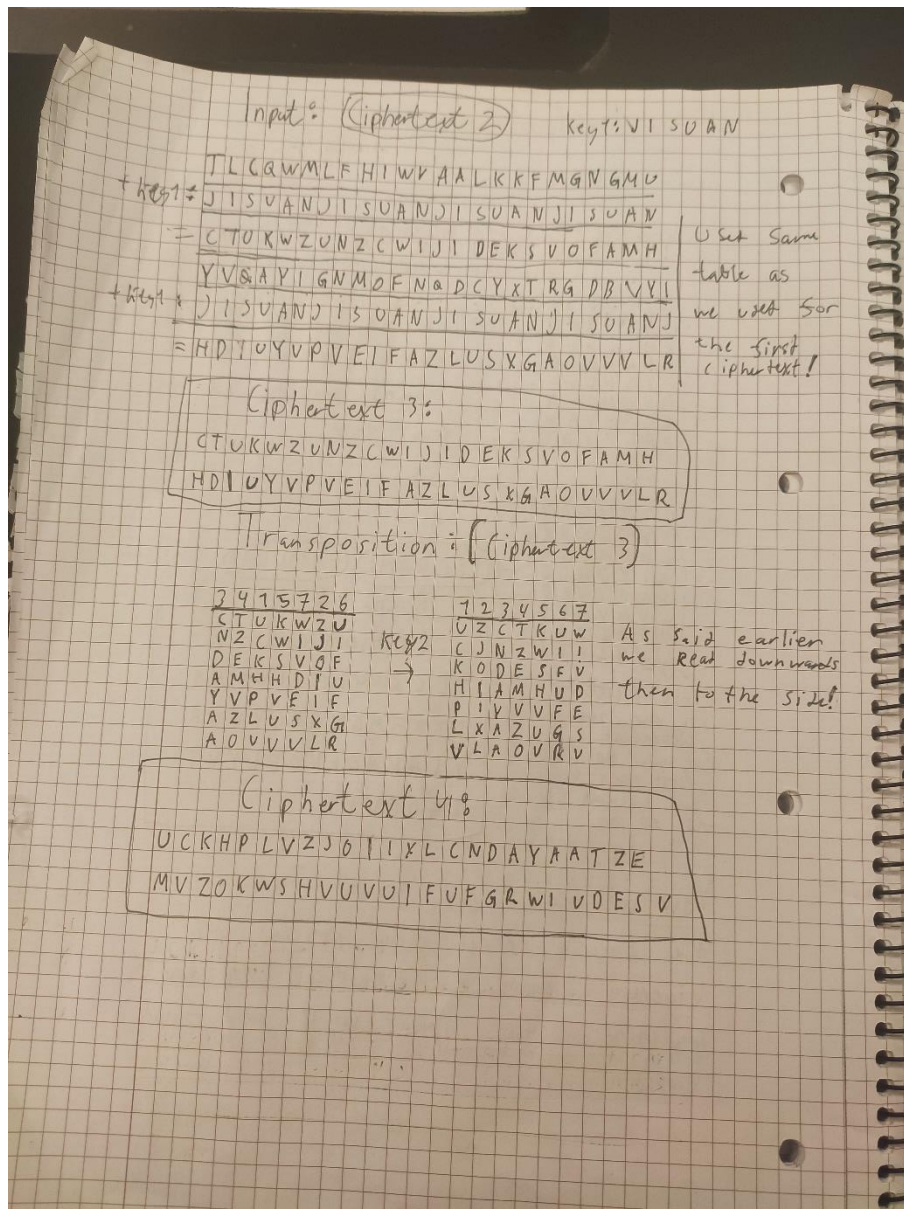 Input: Ciphertext 2 Key1: VISUAN
TLCQWMLFHIWVAALKKFMGNGMU
+ Key1: JISUANJISUANJISUANJISUAN
= CTUKWZUNZCWIJIDEKSVOFAMH
YVQAYIGNMOFNQDCYXTRGDBVYI
+ Key1: JISUANJISUANJISUANJISUANJ
= HDIUYVPVEIFAZLUSXGAOVVVLR
Uset same
table as
we uset for
the first
ciphertext!
Ciphertext 3:
CTUKWZUNZCWIJIDEKSVOFAMH
HDIUYVPVEIFAZLUSXGAOVVVLR
Transposition: [Ciphertext 3]
3 4 1 5 7 2 6
C T U K W Z U
N Z C W I J I
D E K S V O F
A M H H D I U
Y V P V E I F
A Z L U S X G
A O V V V L R
Key2
→
1 2 3 4 5 6 7
U Z C T K U W
C J N Z W I I
K O D E S F V
H I A M H U D
P I Y V V F E
L X A Z U G S
V L A O V R V
As said earlier
we Read downwards
then to the side!
Ciphertext 4:
UCKHPLVZJOIIXLCNDAYAATZE
MVZOKWSHVUVUIFUFGRWIVDESV